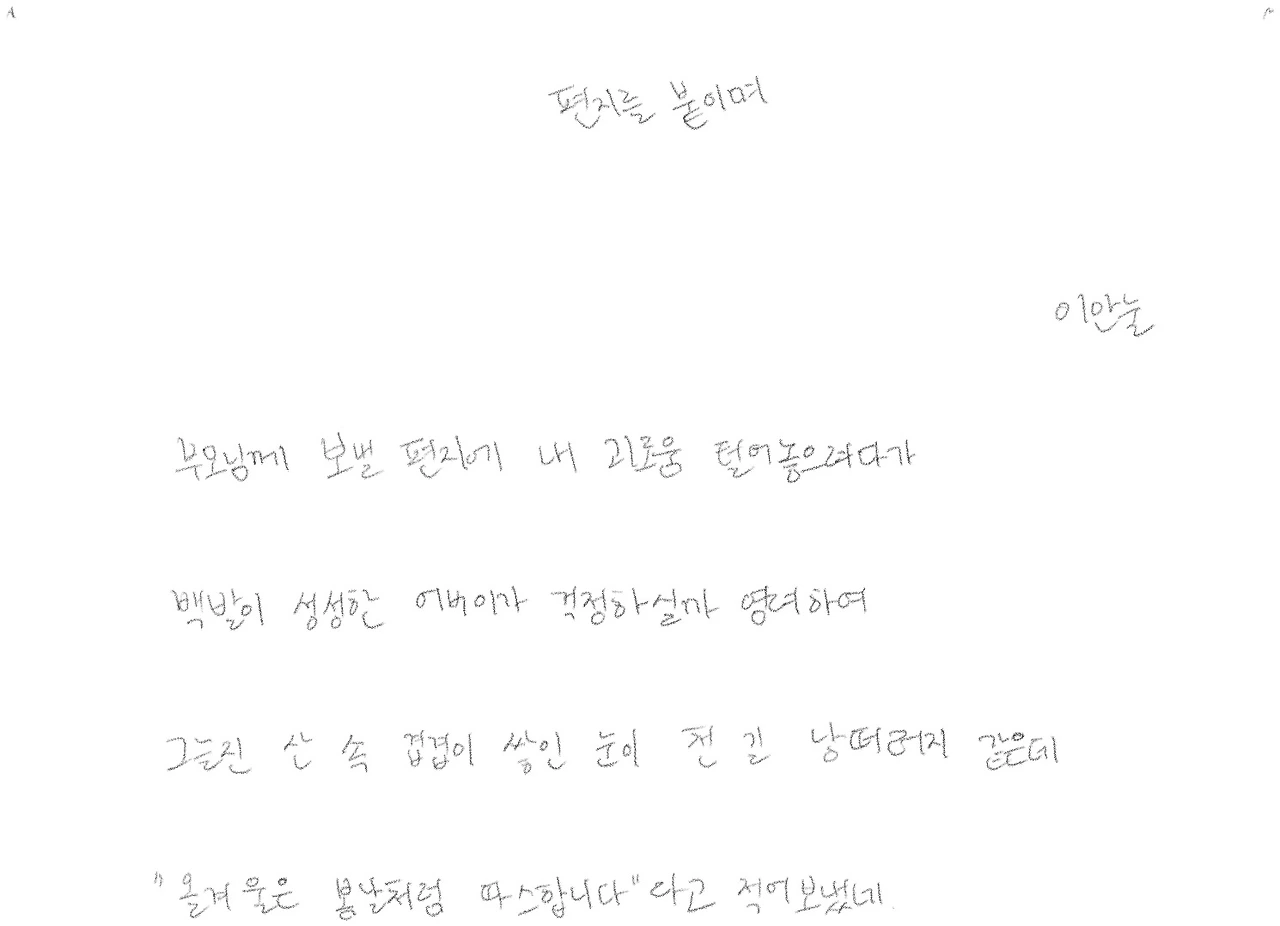 편지를 붙이며
이안눌
부모님께 보낼 편지에 내 괴로움 털어놓으려다가
백발이 성성한 어버이가 걱정하실까 염려하여
그늘진 산 속 겹겹이 쌓인 눈이 천 길 낭떠러지 같은데
"올겨울은 봄날처럼 따스합니다"라고 적어보냈네.